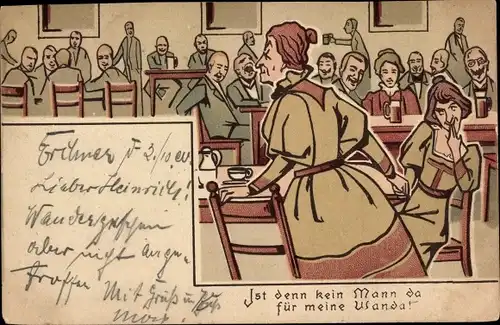 Lieber Heinrich!
Wanderzeichen
aber nicht ange-
troffen
Mit Gruß
Ist denn kein Mann da
für meine Wanda!"